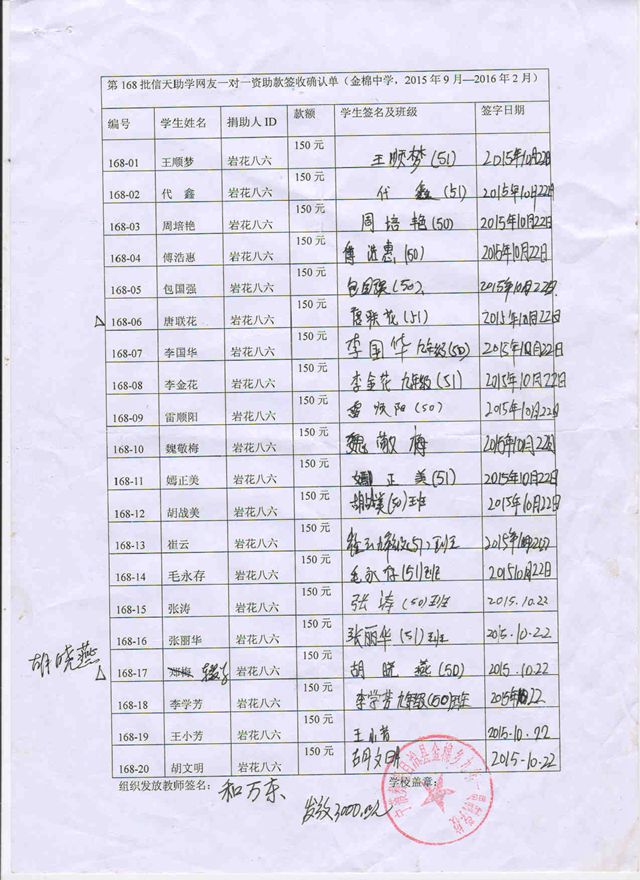 第 168 批信天助学网友一对一资助款签收确认单（金棉中学，2015 年 9 月—2016 年 2 月）
编号 学生姓名 捐助人 ID 款额 学生签名及班级 签字日期
168-01 王顺梦 岩花八六 150 元 王顺梦(51) 2015年10月22日
168-02 代 鑫 岩花八六 150 元 代 鑫(51) 2015年10月22日
168-03 周培艳 岩花八六 150 元 周培艳(50) 2015年10月22日
168-04 傅浩惠 岩花八六 150 元 傅浩惠(50) 2015年10月22日
168-05 包国强 岩花八六 150 元 包国强(50) 2015年10月22日
168-06 唐联花 岩花八六 150 元 唐联花(51) 2015年10月22日
168-07 李国华 岩花八六 150 元 李国华九年级(50) 2015年10月22日
168-08 李金花 岩花八六 150 元 李金花九年级(51) 2015年10月22日
168-09 雷顺阳 岩花八六 150 元 雷顺阳(50) 2015年10月22日
168-10 魏敬梅 岩花八六 150 元 魏敬梅 2015年10月22日
168-11 嫣正美 岩花八六 150 元 嫣正美(51) 2015年10月22日
168-12 胡战美 岩花八六 150 元 胡战美(50)班 2015年10月22日
168-13 崔云 岩花八六 150 元 崔云九年级(51)班 2015年10月22日
168-14 毛永存 岩花八六 150 元 毛永存(51)班 2015年10月22日
168-15 张涛 岩花八六 150 元 张涛(50)班 2015.10.22
168-16 张丽华 岩花八六 150 元 张丽华(51)班 2015.10.22
胡晓燕 168-17 岩花八六 150 元 胡晓燕(50) 2015.10.22
168-18 李学芳 岩花八六 150 元 李学芳九年级(50)班 2015年10.22
168-19 王小芳 岩花八六 150 元 王小芳 2015-10.22
168-20 胡文明 岩花八六 150 元 胡文明 2015-10.22
组织发放教师签名： 和万东 学校盖章：
发放3000元